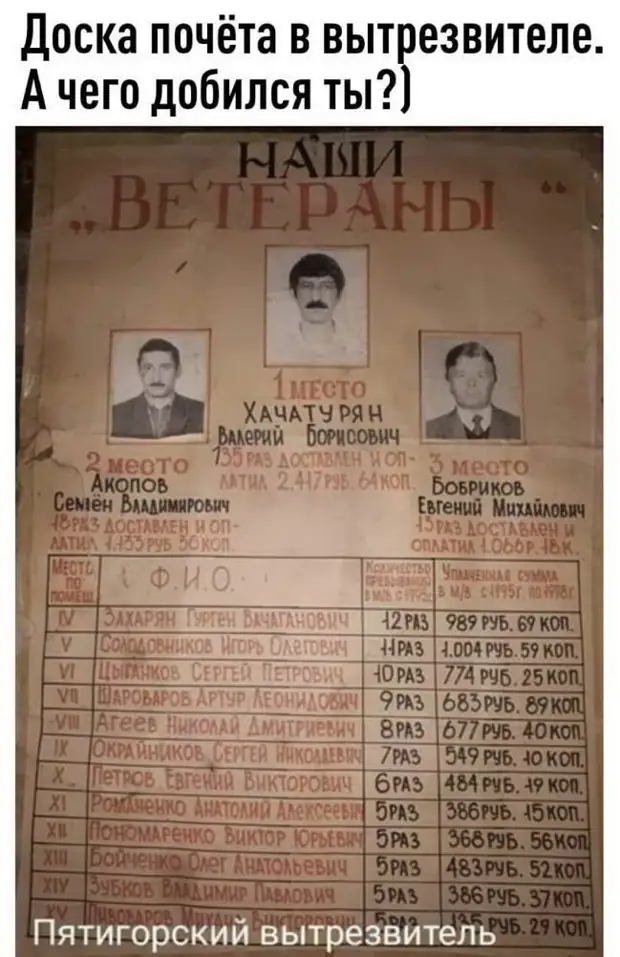 Доска почёта в вытрезвителе.
А чего добился ты?)
НАШИ
„ВЕТЕРАНЫ“
1 МЕСТО
ХАЧАТУРЯН
ВАЛЕРИЙ БОРИСОВИЧ
135 РАЗ ДОСТАВЛЕН И ОП-
ЛАТИЛ 2.417 РУБ. 64 КОП.
2 МЕСТО
АКОПОВ
СЕМЁН ВЛАДИМИРОВИЧ
18 РАЗ ДОСТАВЛЕН И ОП-
ЛАТИЛ 1.133 РУБ 36 КОП.
3 МЕСТО
БОБРИКОВ
ЕВГЕНИЙ МИХАЙЛОВИЧ
13 РАЗ ДОСТАВЛЕН И
ОПЛАТИЛ 1.066 Р. 18 К.
МЕСТО ПО ПОМЕЩ. Ф.И.О. КОЛИЧЕСТВО ПРЕБЫВАНИЙ В М/В С 1995г. УПЛАЧЕННАЯ СУММА В М/В с 1995г. по 1998г.
IV ЗАХАРЯН ГУРГЕН ВАЧАГАНОВИЧ 12 РАЗ 989 РУБ. 69 КОП.
V СОЛОДОВНИКОВ ИГОРЬ ОЛЕГОВИЧ 11 РАЗ 1.004 РУБ. 59 КОП.
VI ЦЫГАНКОВ СЕРГЕЙ ПЕТРОВИЧ 10 РАЗ 774 РУБ. 25 КОП.
VII ШАРОВАРОВ АРТУР ЛЕОНИДОВИЧ 9 РАЗ 683 РУБ. 89 КОП.
VIII АГЕЕВ НИКОЛАЙ ДМИТРИЕВИЧ 8 РАЗ 677 РУБ. 40 КОП.
IX ОКРАЙНИКОВ СЕРГЕЙ НИКОЛАЕВИЧ 7 РАЗ 549 РУБ. 10 КОП.
X ПЕТРОВ ЕВГЕНИЙ ВИКТОРОВИЧ 6 РАЗ 484 РУБ. 19 КОП.
XI РОМАНЕНКО АНАТОЛИЙ АЛЕКСЕЕВИЧ 5 РАЗ 386 РУБ. 15 КОП.
XII ПОНОМАРЕНКО ВИКТОР ЮРЬЕВИЧ 5 РАЗ 368 РУБ. 56 КОП.
XIII БОЙЧЕНКО ОЛЕГ АНАТОЛЬЕВИЧ 5 РАЗ 483 РУБ. 52 КОП.
XIV ЗУБКОВ ВЛАДИМИР ПАВЛОВИЧ 5 РАЗ 386 РУБ. 37 КОП.
XV ПИВОВАРОВ МИХАИЛ ВИКТОРОВИЧ 5 РАЗ РУБ. 29 КОП.
Пятигорский вытрезвитель